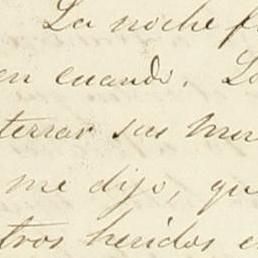 La noche f
en cuando. Lo
terrar sus mu
me dijo, qu
tros heridos e